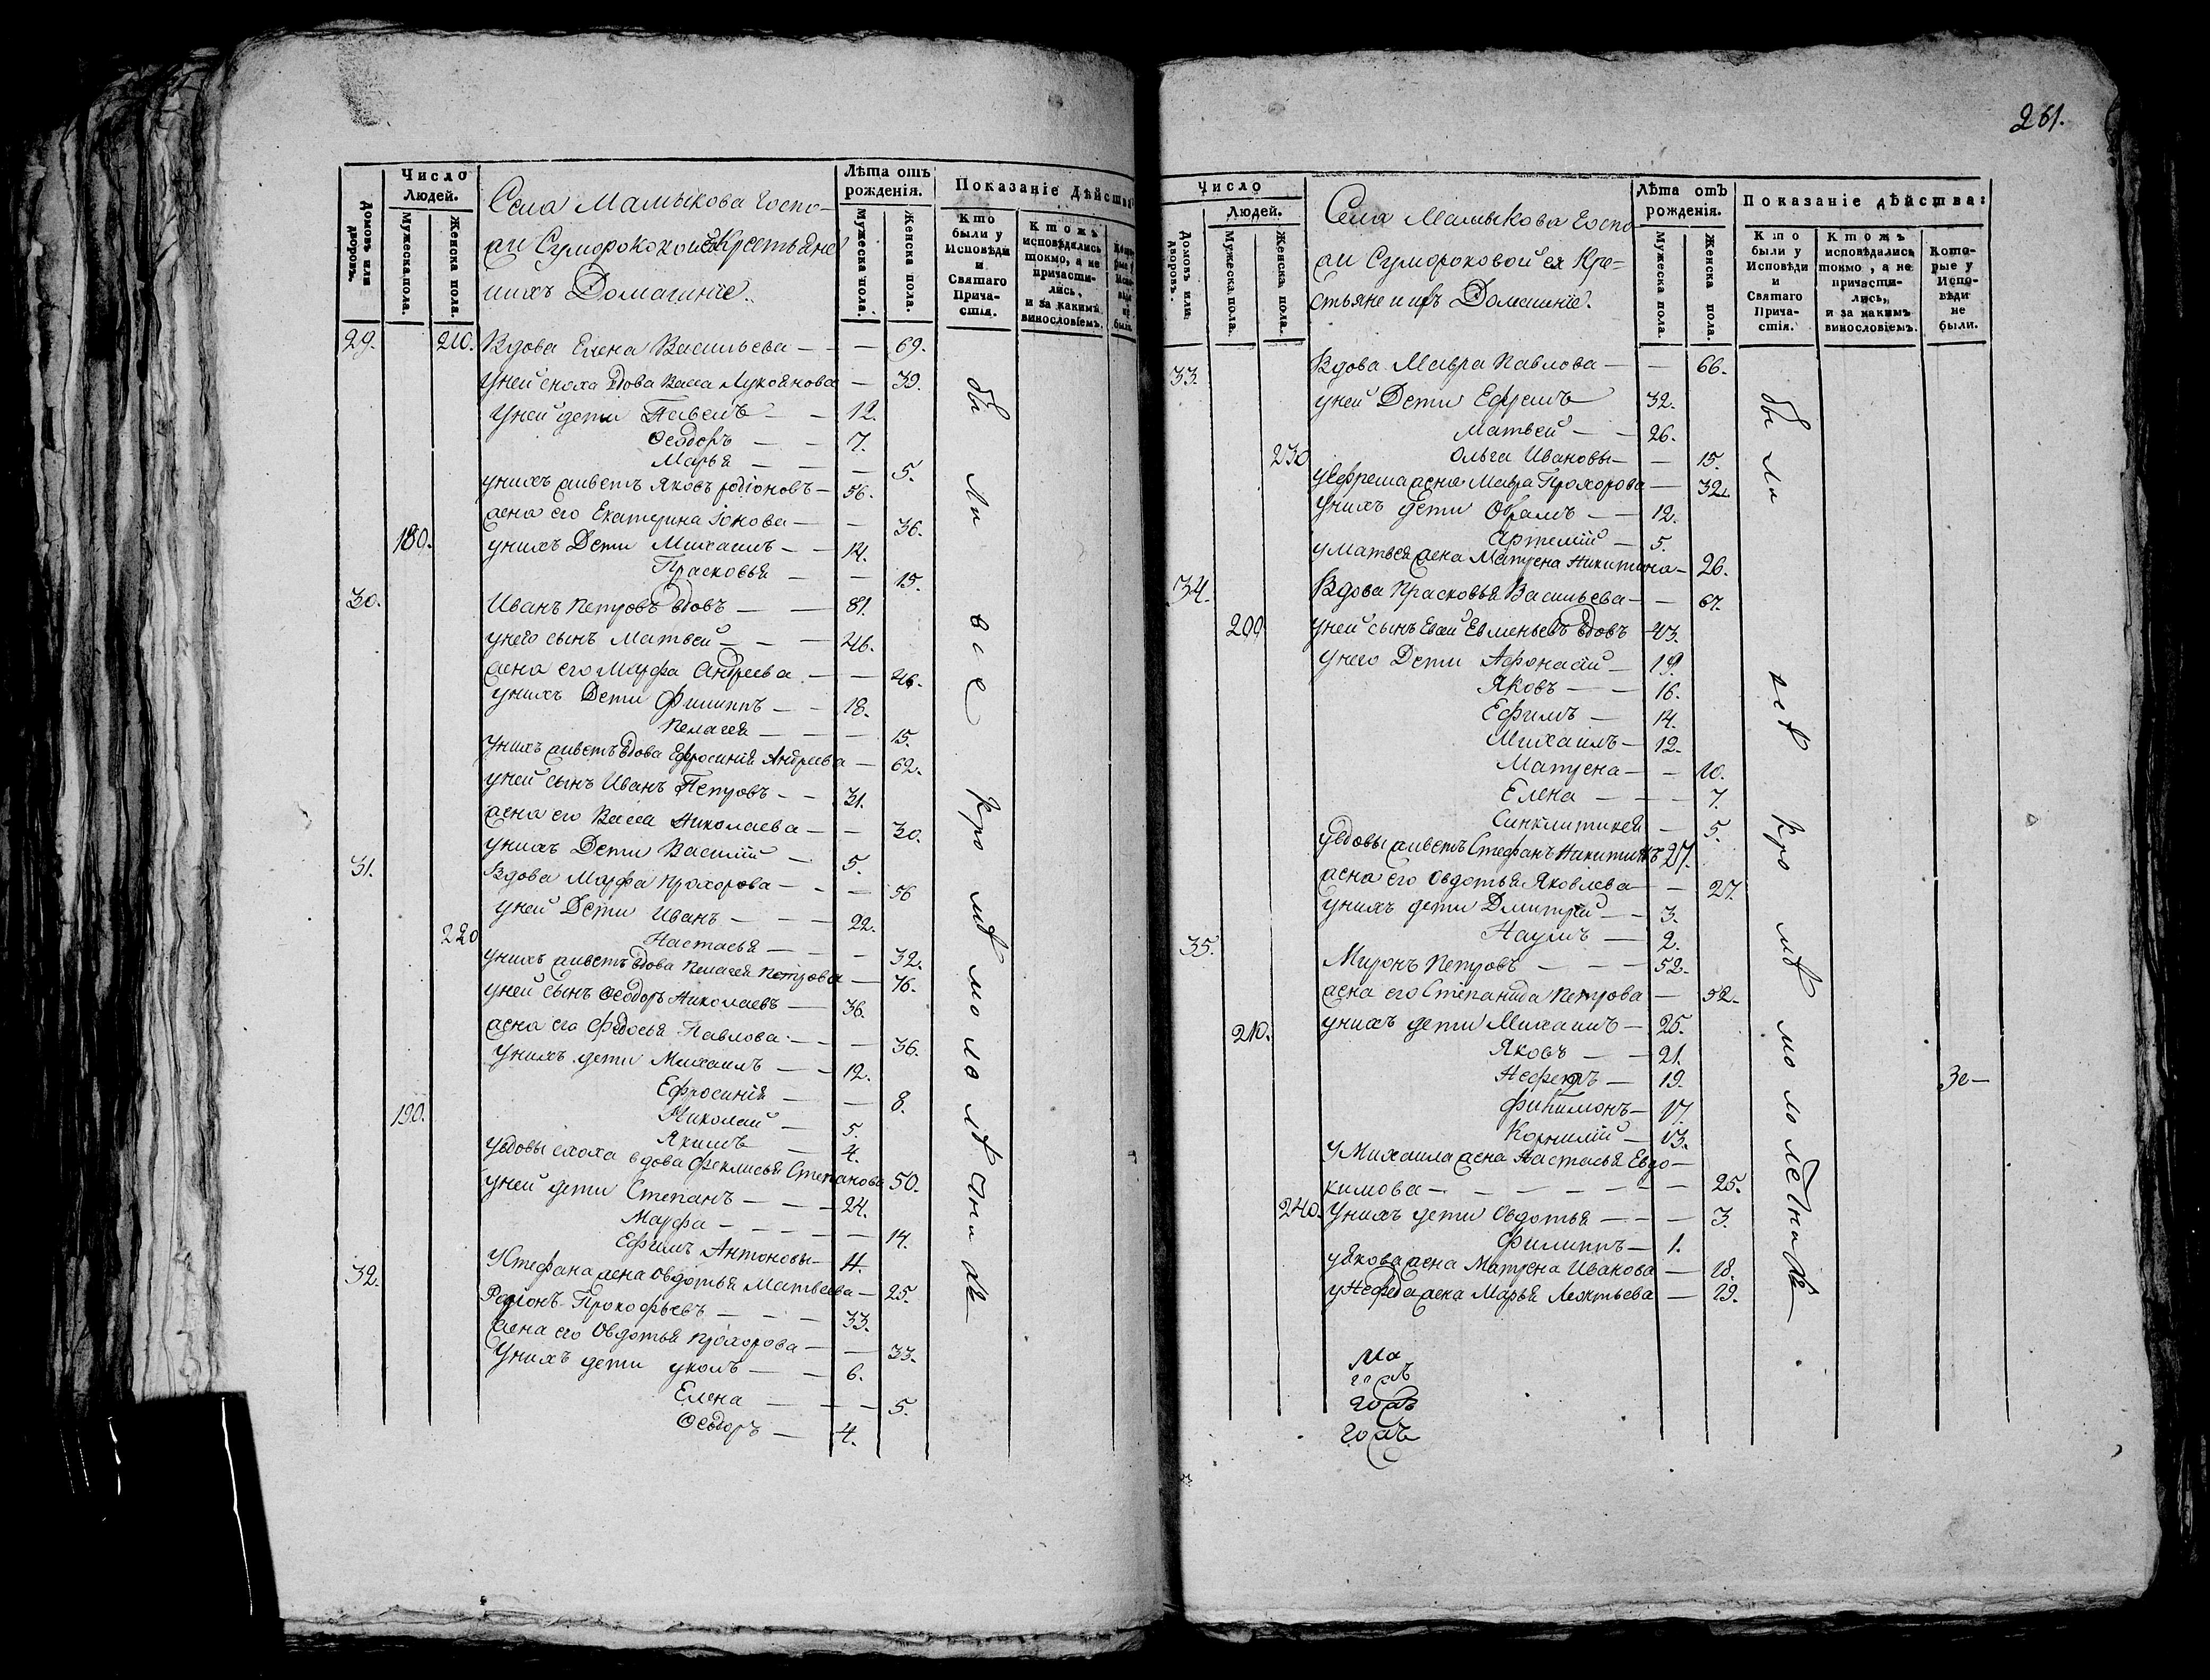 Число
Людей.
Домовъ или дворовъ.
Мужеска пола.
Женска пола.
Села Мамыкова Госпо-
жи Сумороковой Крестьяне
ихъ Домашніе.
Лѣта отъ
рожденія.
Мужеска пола.
Женска пола.
Показаніе дѣйства:
Кто
были у
Исповѣди
и
Святаго
Прича-
стія.
Ктожъ
исповѣдались
токмо, а не
причасти-
лись,
и за какимъ
винословіемъ.
29. 210. Вдова Елена Васильева — 69.
у ней сноха вдова Васса Лукоянова — 39.
у ней дети Павелъ — 12.
Ѳеодоръ — 7.
Марья — 5.
у нихъ живетъ Яковъ родіоновъ — 56.
жена его Екатерина Іонова — 36.
180. у нихъ Дети Михаилъ — 14.
Прасковья — 15.
30. Иванъ Петровъ вдовъ — 81.
у него сынъ Матвей — 46.
жена его Марфа Андреева — 46.
у нихъ Дети Филиппъ — 18.
Пелагея — 15.
у нихъ живетъ вдова Ефросинія Андреева — 62.
у ней сынъ Иванъ Петровъ — 31.
жена его Васса Николаева — 30.
у нихъ Дети Василій — 5.
31. Вдова Марфа Прохорова — 56
у ней Дети Иванъ — 22.
220 Настасья — 32.
у нихъ живетъ вдова Пелагея Петрова — 76.
у ней сынъ Ѳеодоръ Николаевъ — 36.
жена его Федосья Павлова — 36.
у нихъ дети Михаилъ — 12.
Ефросинія — 8.
190. Николай — 5.
Якимъ — 4.
у вдовы сноха вдова Феклисья Степанова 50.
у ней дети Степанъ — 24.
Марфа — 14.
Ефимъ Антоновы — 11.
у Стефана жена Овдотья Матвеева — 25.
32. Родіонъ Прокофьевъ — 33.
жена его Овдотья Прохорова — 33.
у нихъ дети — 6.
Елена — 5.
Ѳеодоръ — 4.
бы ли все кро мѣ мо ло лѣт ны хъ
261.
Число
Людей.
Домовъ или дворовъ.
Мужеска пола.
Женска пола.
Села Мамыкова Госпо
жи Сумороковой ея Кре-
стьяне и ихъ Домашніе.
Лѣта отъ
рожденія.
Мужеска пола.
Женска пола.
Показаніе дѣйства:
Кто
были у
Исповѣди
и
Святаго
Прича-
стія.
Ктожъ
исповѣдались
токмо, а не
причасти-
лись,
и за какимъ
винословіемъ.
Кото-
рые у
Испо-
вѣди
не
были.
33. Вдова Мавра Павлова — 66.
у ней Дети Ефремъ — 32.
Матвей — 26.
230 Ольга Ивановы — 15.
у Ефрема жена Мавра Прохорова — 32.
у нихъ дети Обрамъ — 12.
Артемій — 5.
у Матвея жена Матрена Никитина — 26.
34. Вдова Прасковья Васильева — 67.
200 у ней сынъ Евсей Евменьевъ вдовъ 43.
у него Дети Афонасій — 19.
Яковъ — 16.
Ефимъ — 14.
Михаилъ — 12.
Матрена — 10.
Елена — 7.
Синклитикея — 5.
у вдовы живетъ Стефанъ Никитинъ 27.
жена его Овдотья Яковлева — 27.
у нихъ дети Дмитрей — 3.
Наумъ — 2.
35. Миронъ Петровъ — 52.
жена его Степанида Петрова — 52.
210. у нихъ дети Михаилъ — 25.
Яковъ — 21.
Нефедъ — 19.
Филимонъ — 17.
Корнилій — 13.
у Михаила жена Настасья Евдо-
кимова — 25.
240. у нихъ дети Овдотья — 3.
Филиппъ — 1.
у Якова жена Матрена Иванова — 18.
у Нефеда жена Марья Леонтьева — 19.
бы ли все кро мѣ мо ло летны хъ
Зе —